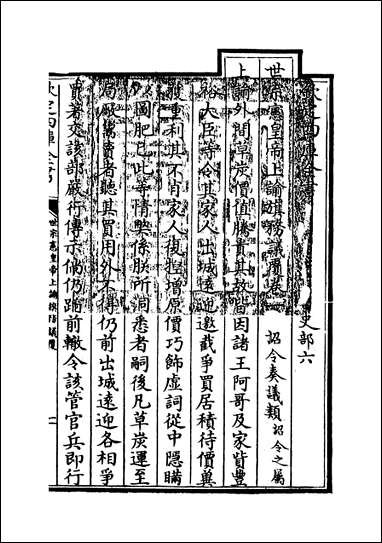 欽定四庫全書　史部六
世宗憲皇帝上諭旗務議覆卷一　詔令奏議類詔令之屬
上諭外間草炭價值騰貴其故皆因諸王阿哥及家貲豐
裕大臣等令其家人出城遠迎邀截爭買居積待價冀
獲重利其不肖家人復揑增原價巧飾虛詞從中隱瞞
圖肥已此等情弊係朕所洞悉者嗣後凡草炭運至
局厰鬻賣者聽其買用外不得仍前出城遠迎各相爭
買著交該部嚴行傳示倘仍蹈前轍令該管官兵即行
欽定四庫全書　世宗憲皇帝上諭旗務議覆　一